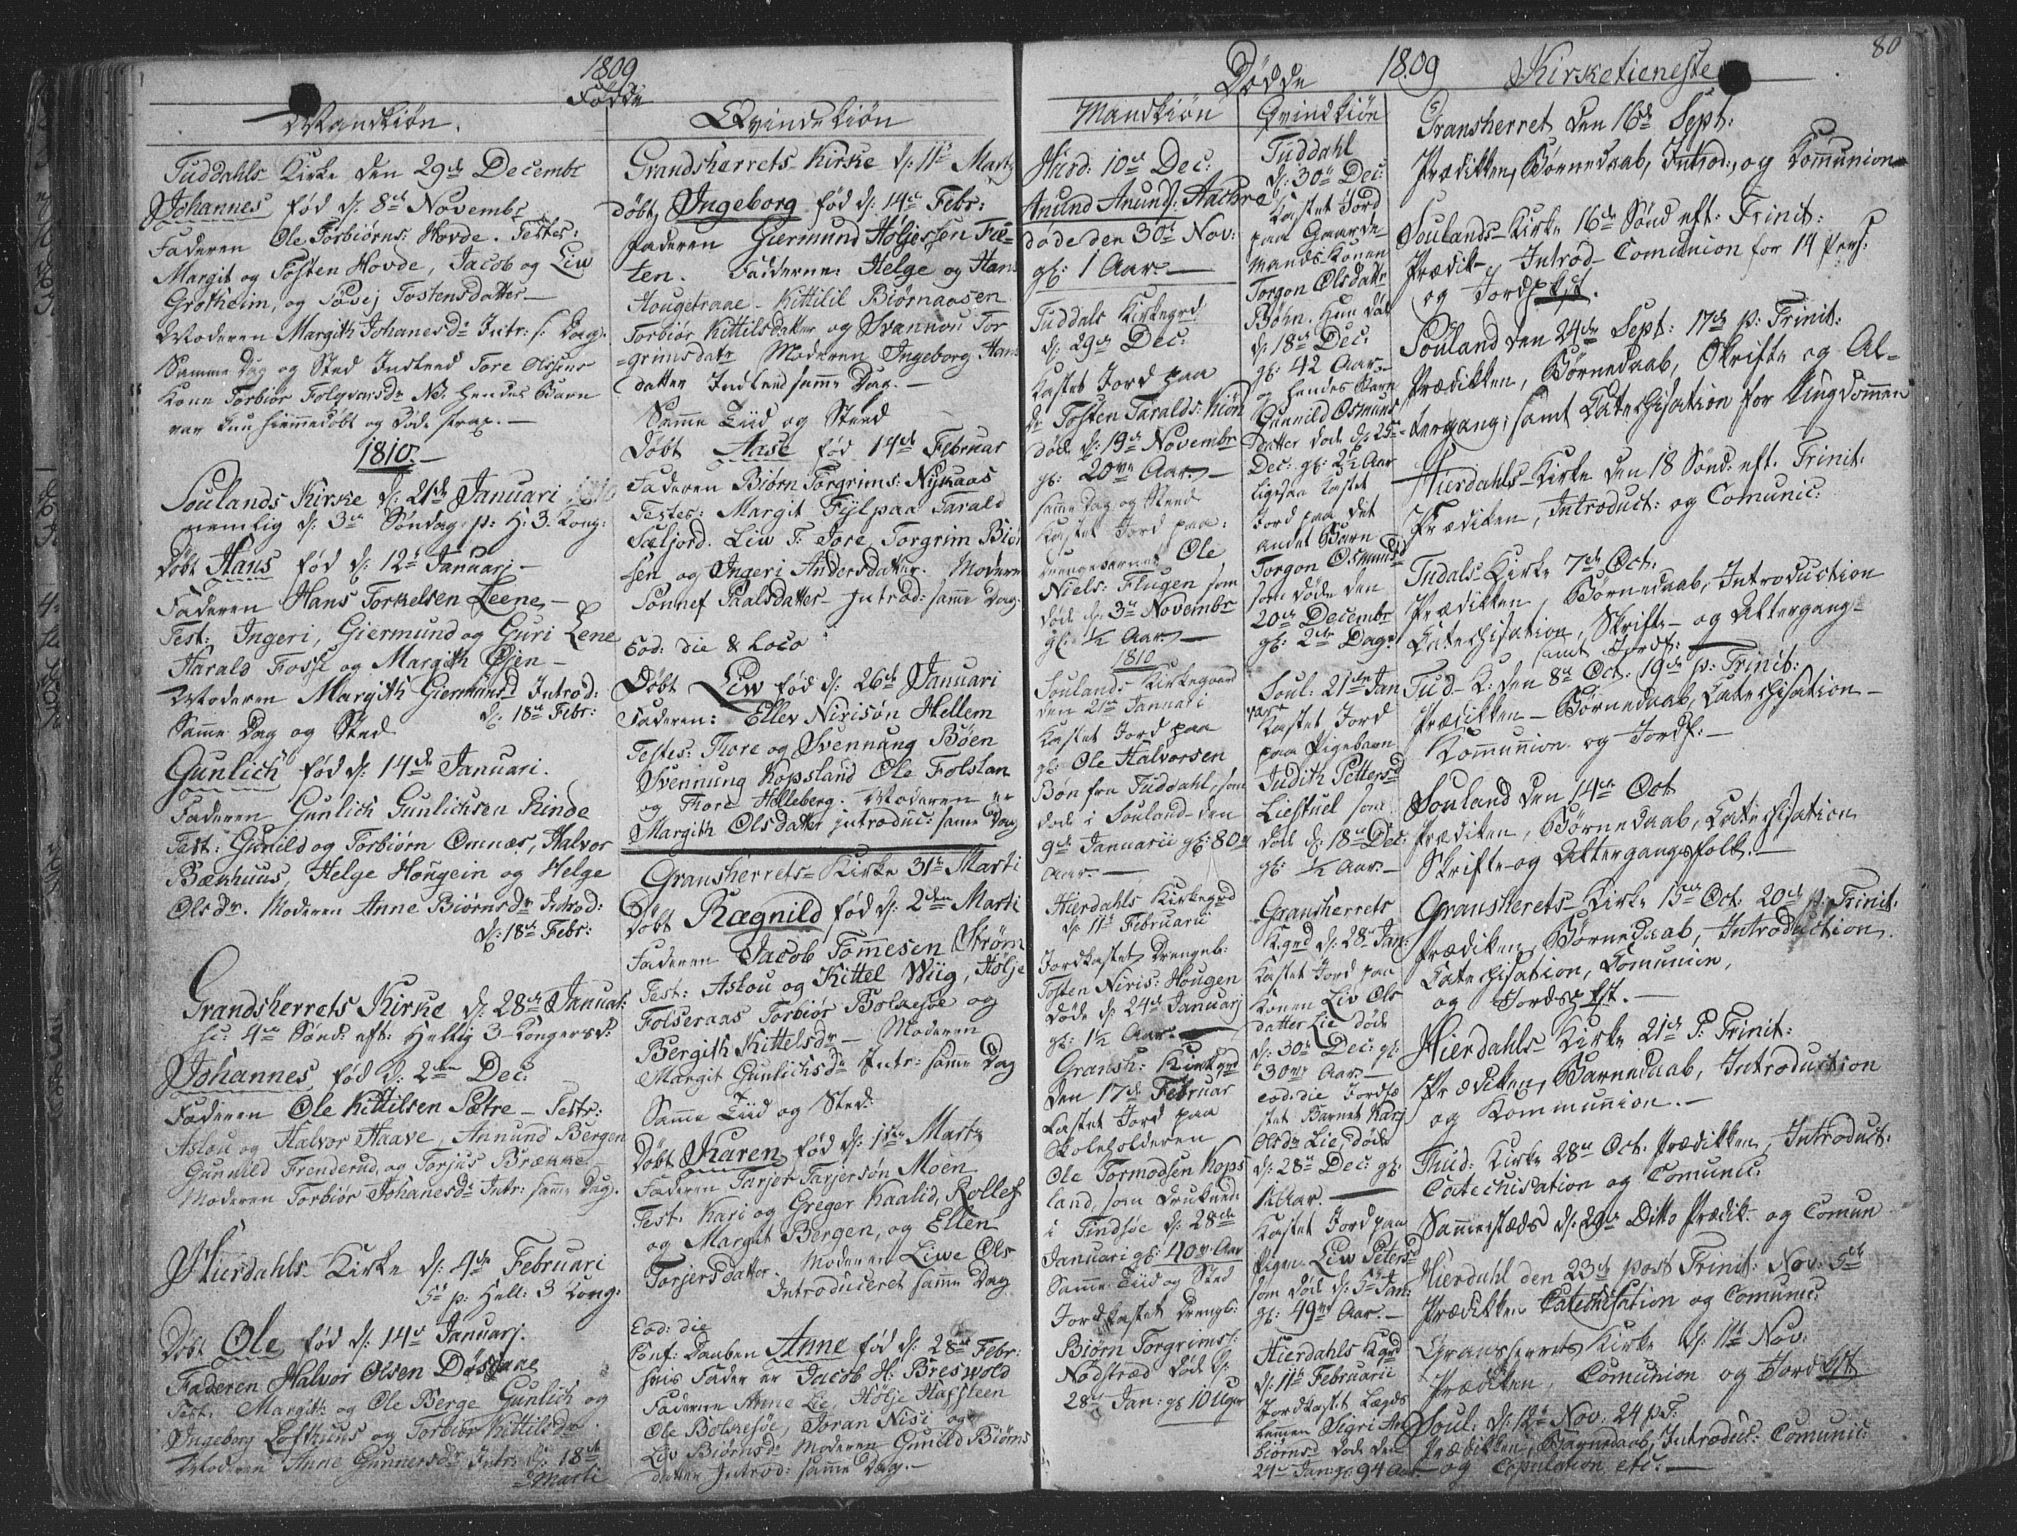 1809
Fødde
Mandkiøn.
Tuddahls Kirke den 29de Decembr
Johannes fød d: 8de Novembr
Faderen Ole Torbiørns: Hovde. Testes:
Margit og Tosten Hovde, Jacob og Liv
Grotheim, og Tostensdatter
Moderen Margith Johanesdr Intr: s: Dag.
Samme Dag og Sted Indleed Tore Olsens
Kone Torbiør Folqvarsdr NB. Hendes Barn
var kun hiemmedøbt og døde strax.
1810.
Soulands Kirke d: 21de Januari 1810
nemlig d: 3de Søndag p: H: 3 Kong:
Døbt Hans fød d: 12te Januari
Faderen Hans Torkelsen Leene
Test: Ingeri, Giermund og Guri Lene
Harald Fosse og Margith Øjen
Moderen Margith Giermundsd Introd:
d: 18de Febr:
Samme Dag og Sted
Gunlich fød d: 14de Januari.
Faderen Gunlich Gunlichsen Rinde
Test: Gunild og Torbiørn Omnæs, Halvor
Bækhuus, Helge Høngein og Helge
Olsdr. Moderen Anne Biørnsdr Introd:
d: 18de Febr:
Grandsherrets Kirke d: 28de Januar:
4de Sønd: eft: Hellig 3 Kongersd:
Johannes fød d: 2den Dec:
Faderen Ole Kittilsen Sætre - Testr:
Aslou og Halvor Haave, Annund Bergen
Gunnild Frenderud, og Torjus Brække
Moderen Torbiør Johanesdr Intr: samme Dag.
Hierdahls Kirke d: 4de Februari
5te p: Hell: 3 Kong:
Døbt Ole fød d: 14de Januarj.
Faderen Halvor Olsen Døsdane
Test. Margith og Ole Berge Gunlich og
Ingeborg Lofthuus og Torbiør Kittilsdr
Moderen Anne Gunnersdr Intr: d: 18de
Marti
Qvindekiøn
Grandsherrets Kirke d: 11te Martz
døbt Ingeborg fød d: 14de Febr:
Faderen Giermund Høljessen Fle-
ten. Fadderne: Helge og Hans
Hougetraae - Kittilil Biørnaasen
Torbiør Kittilsdatter og Svannou Tor
=grimsdatr Moderen Ingeborg Hans
datter Indleed samme Dag.
Samme Tiid og Sted
Døbt Aase fød 14de Februar
Faderen Biørn Torgrims: Nykaas
Testes: Margit Fylpaa Tarald
Sæljord. Liv T. Tore, Torgrim Biør
sen og Ingeri Andersdatter. Modern
Sonnef Paalsdatter Introd: samme Dag.
Eod: die & Loco
Døbt Liv fød d: 26de Januari
Faderen: Ellev Nirisøn Hellem
Testes: Thore og Svennung Bøen
Svennung Kopsland Ole Folslan
og Thore Holleberg. Moderen er
Margith Olsdatter introduc: samme Dag
Gransherrets Kirke 31te Marti
Døbt Rægnild fød d: 2den Marti
Faderen Jacob Tommesen Strøm
Test: Aslou og Kittel Wiig, Hølje
Folseraas Torbiør Bolkesøe og
Bergith Kittelsdr - Moderen
Margit Gunlichsdr Intr: samme Dag
Samme Tiid og Sted:
Døbt Karen fød d: 1ste Martz
Faderen Tarjer Tarjersøn Moen
Test: Kari og Greger Kaalid, Rollef
og Margit Bergen, og Ellen
Torjersdatter. Moderen Liwe Ols
Introduceret samme Dag
Eod: die
Conf: Dauben Anne fød d: 28de Febr:
hvis Fader er Jacob H: Breswold
Fadderne Anne Lie, Hølje Haffsteen
Ole Bolkesøe, Joran Nisi og
Liv Biørnsdr Moderen Gunild Biørns
datter Introd: samme Dag.
Dødde 1809
Mandkiøn
Hierd: 10de Dec:
Anund Anunds: Aachre
døde den 30te Nov:
gl: 1 Aar
Tuddals Kirkegrd.
d: 29de Dec:
Kastet Jord paa
Dr Tosten Taralds: Kiøn
død d: 19de Novembr
gl: 20ve Aar
samme Dag og Sted
Kastet Jord paa:
Drengebarnet Ole
Niels: Flugen som
døde d: 3de Novembr
gl: ½ Aar
1810
Soulands Kirkegaard
den 21de Januari
Kastet Jord paa
gl: Ole Halvorsen
Bøn fra Tuddahl, som
døde i Souland den
9de Januarii gl: 80
Aar.
Hierdahls Kirkegrd
d: 11te Februarii
Jordkastet Drengeb:
Tosten Niris: Hougen
Døde d: 24de Januarj
gl: 1½ Aar.
Gransh: Kirkegrd
Den 17de Februar
Kastet Jord paa
Skoleholderen
Ole Tormodsen Kops
land, som druknede
i Tindsøe d: 28de
Januari gl: 40ve Aar
Samme Tiid og Sted
Jordkastet Drengb:
Biørn Torgrims:
Nødstræd døde d:
28de Jan: gl 10 Uger
Qvindkiøn
Tuddahl
d: 30te Dec:
Kastet Jord
paa Gaarde
mands Konen
Torgon Olsdatter
Bøhn. Hun døde
d: 18de Dec:
gl: 42 Aar
og hendes Barn
Gunnild Osmuns
datter døde d: 25
Dec: gl: 2½ Aar
ligesaa Kastet
Jord paa det
andet Barn
Torgon Osmundsd
som døde den
20de Decembr
gl: 2de Dage
Soul: 21de Jan
Kastet Jord
paa Pigebarn
Judith Pettersd
Liestuel som
døde d: 18de Dec:
gl: ½ Aar.
Gransherrets
K:grd d: 28de Jan:
Kastet Jord paa
Konen Liv Ols
datter Lie døde
d: 30te Dec: gl:
30 Aar
eod: die Jordfæ
stet Barnet Karj
Olsdr Lie, døde
d: 28de Dec: gl:
1 Aar.
Kastet Jord paa
Pigen Liv Petersd
som døde d: 5te Jan:
gl: 49 Aar.
Hierdahls K:grd
d: 11te Februarii
Jordkastet Lægds
lemen Sigri An
biørnsd døde den
24de Jan: gl 94 Aar
1809 Kirketieneste
80
Gransherret den 16de Sept:
Prædikken, Børnedaab, Introd:, og Komunion
Soulands Kirke 16de Sønd eft: Trinit:
Prædik- Introd- Comunion for 14 Pers:
og Jordpkst.
Souland den 24de Sept: 17de p: Trinit:
Prædikken, Børnedaab, Skrifte og Al-
tergang, samt Katechisation for Ungdommen
Hierdahls Kirke den 18 Sønd: eft. Trinit:
Prædiken, Introduct: og Comunic:
Tudals Kirke 7de Oct:
Prædikken, Børnedaab, Introduction
Catechisation, Skrifte- og Altergang-
samt Jordf:
Tud- K: den 8de Oct: 19de p: Trinit:
Prædikken - Børnedaab, Catechisation
Kommunion og Jordf:
Souland den 14de Oct
Prædiken, Børnedaab, Catechisation
Skrifte- og Altergangsfolk.
Gransherets- Kirke 15de Oct: 20de p: Trinit:
Prædiken, Børnedaab, Introduction.
Catechisation, Comunion,
og Jordsfst.
Hierdahls- Kirke 21de P: Trinit:
Prædiken, Barnedaab, Introduction
og Kommunion.
Thud: Kirke 28de Oct: Prædikken, Introduct:
Catechisation og Comunic:
Sammestæds d: 29de Ditto Prædik- og Comun
Hierdahl den 23de post Trinit: Nov: 5te
Prædikken Catechisation og Comunic
Gransherrets Kirke d: 11te Nov:
Prædiken, Comunion og Jordfst
Soul: d: 12te Nov: 24 p:T:
Prædikken, Barnedaab, Introduc: Comunic:
og Copulation etc: